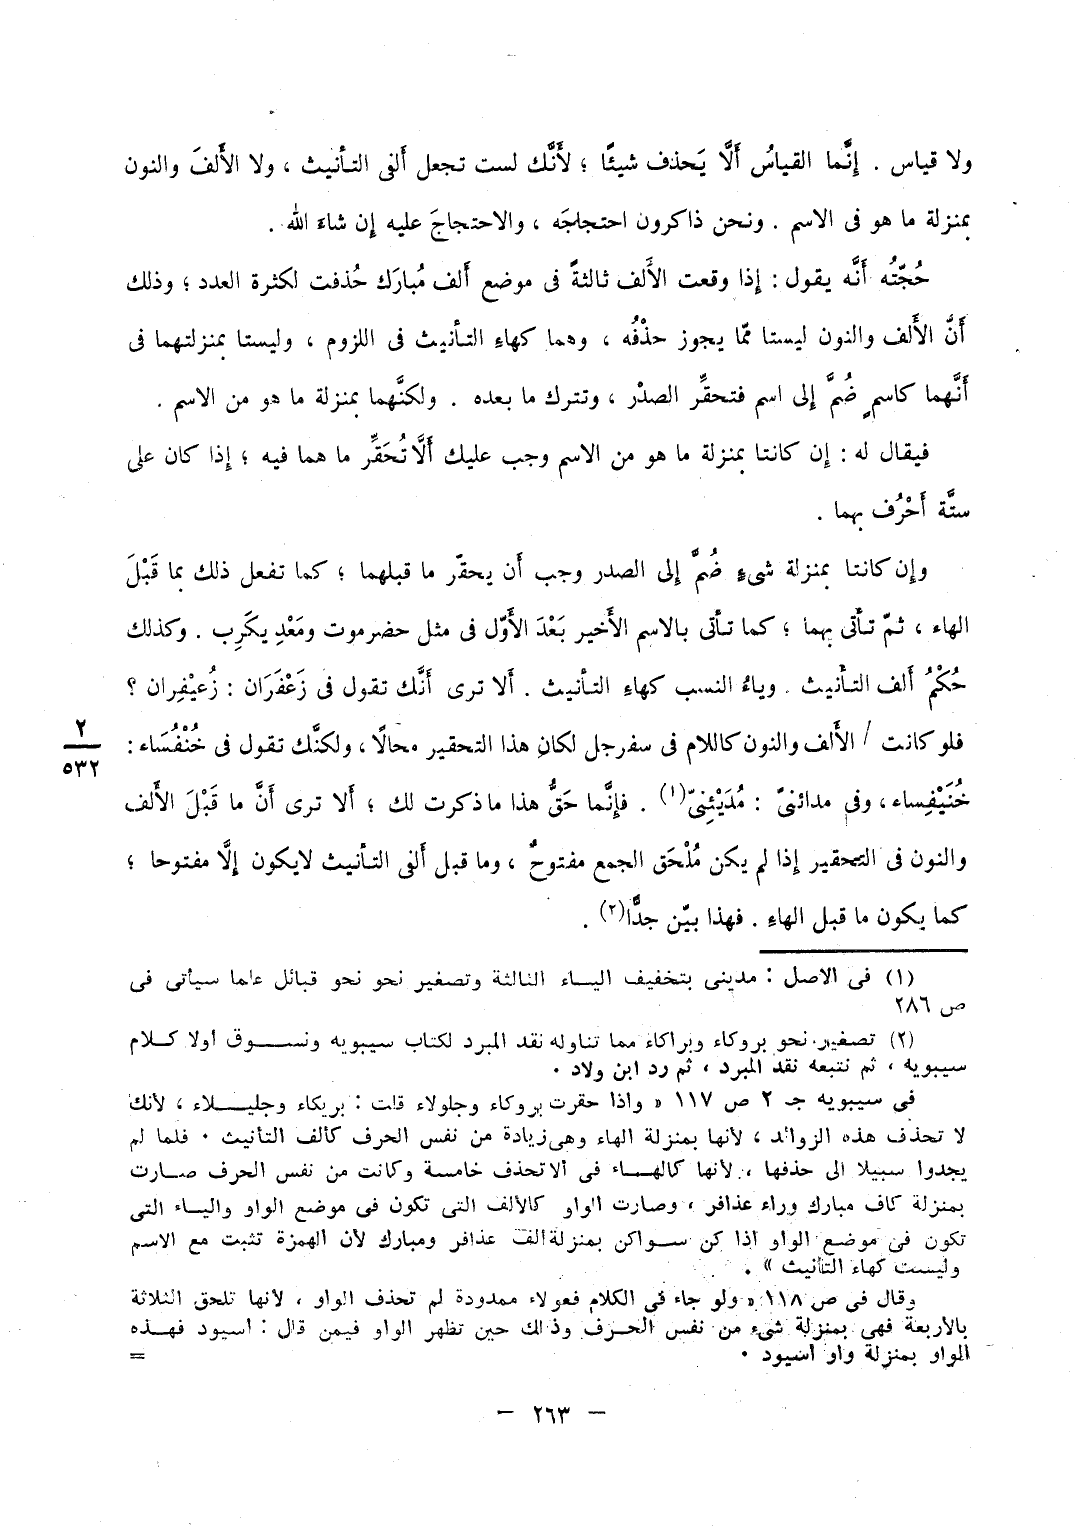 ولا قياس . إِنَّما القياسُ أَلَّا يَحذف شيئًا ؛ لأَنَّك لست تجعل ألفى التأنيث ، ولا الأَلفَ والنون
بمنزلة ما هو فى الاسم . ونحن ذاكرون احتجاجَه ، والاحتجاجَ عليه إِن شاءَ الله .
حُجّتُه أَنَّه يقول : إِذا وقعت الأَلف ثالثةً فى موضع أَلف مُبارَك حُذفت لكثرة العدد ؛ وذلك
أَنَّ الأَلف والنون ليستا ممّا يجوز حذْفُه ، وهما كهاءِ التأنيث فى اللزوم ، وليستا بمنزلتهما فى
أَنَّهما كاسمٍ ضُمَّ إِلى اسم فتحقِّر الصدْر ، وتترك ما بعده . ولكنَّهما بمنزلة ما هو من الاسم .
فيقال له : إِن كانتا بمنزلة ما هو من الاسم وجب عليك أَلَّا تُحَقِّر ما هما فيه ؛ إِذا كان على
ستَّة أَحْرُف بهما .
وإِن كانتا بمنزلة شىءٍ ضُمَّ إِلى الصدر وجب أَن يحقر ما قبلهما ؛ كما تفعل ذلك بما قَبْلَ
الهاء ، ثمّ تأتى بهما ؛ كما تأتى بالاسم الأَخير بَعْدَ الأَوّل فى مثل حضرموت ومَعْدِ يكَرِب . وكذلك
حُكْمُ ألف التأنيث . وياءُ النسب كهاءِ التأنيث . أَلا ترى أَنَّك تقول فى زَعْفَرَان : زُعيْفِران ؟
فلو كانت / الأَلف والنون كاللام فى سفرجل لكان هذا التحقير محالًا ، ولكنَّك تقول فى خُنْفُسَاء :
٢
٥٣٢
خُنَيْفِساء ، وفى مدائنىّ : مُدَيْئِنىّ(١) . فإِنَّما حَقُّ هذا ما ذكرت لك ؛ أَلا ترى أَنَّ ما قَبْلَ الأَلف
والنون فى التحقير إِذا لم يكن مُلْحَق الجمع مفتوحٌ ، وما قبل ألفى التأنيث لايكون إِلَّا مفتوحا ؛
كما يكون ما قبل الهاءِ . فهذا بيّن جدًّا(٢) .
(١) فى الاصل : مدينى بتخفيف اليـاء الثالثة وتصغير نحو نحو قبائل علما سيأتى فى
ص ٢٨٦
(٢) تصغير نحو بروكاء وبراكاء مما تناوله نقد المبرد لكتاب سيبويه ونسـوق أولا كـلام
سيبويه ، ثم نتبعه نقد المبرد ، ثم رد ابن ولاد .
فى سيبويه جـ ٢ ص ١١٧ « واذا حقرت بروكاء وجلولاء قلت : بريكاء وجليـلاء ، لأنك
لا تحذف هذه الزوائد ، لأنها بمنزلة الهاء وهى زيادة من نفس الحرف كألف التأنيث . فلما لم
يجدوا سبيلا الى حذفها ، لأنها كالهـاء فى ألا تحذف خامسة وكانت من نفس الحرف صـارت
بمنزلة كاف مبارك وراء عذافر ، وصارت الواو كالألف التى تكون فى موضع الواو واليـاء التى
تكون فى موضع الواو اذا كن سـواكن بمنزلة ألف عذافر ومبارك لأن الهمزة تثبت مع الاسم
وليست كهاء التأنيث » .
وقال فى ص ١١٨ « ولو جاء فى الكلام فعولاء ممدودة لم تحذف الواو ، لأنها تلحق الثلاثة
بالأربعة فهى بمنزلة شىء من نفس الحرف وذلك حين تظهر الواو فيمن قال : أسيود فهـذه
الواو بمنزلة واو أسيود .
=
— ٢٦٣ —